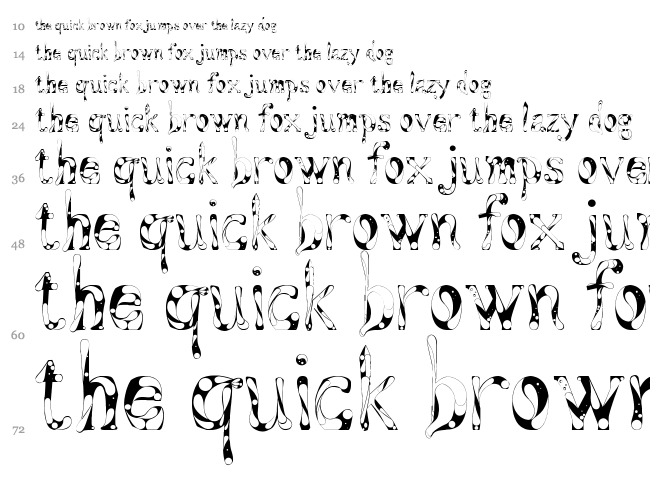 10 the quick brown fox jumps over the lazy dog
14 the quick brown fox jumps over the lazy dog
18 the quick brown fox jumps over the lazy dog
24 the quick brown fox jumps over the lazy dog
36 the quick brown fox jumps ove
48 the quick brown fox ju
60 the quick brown fo
72 the quick brown